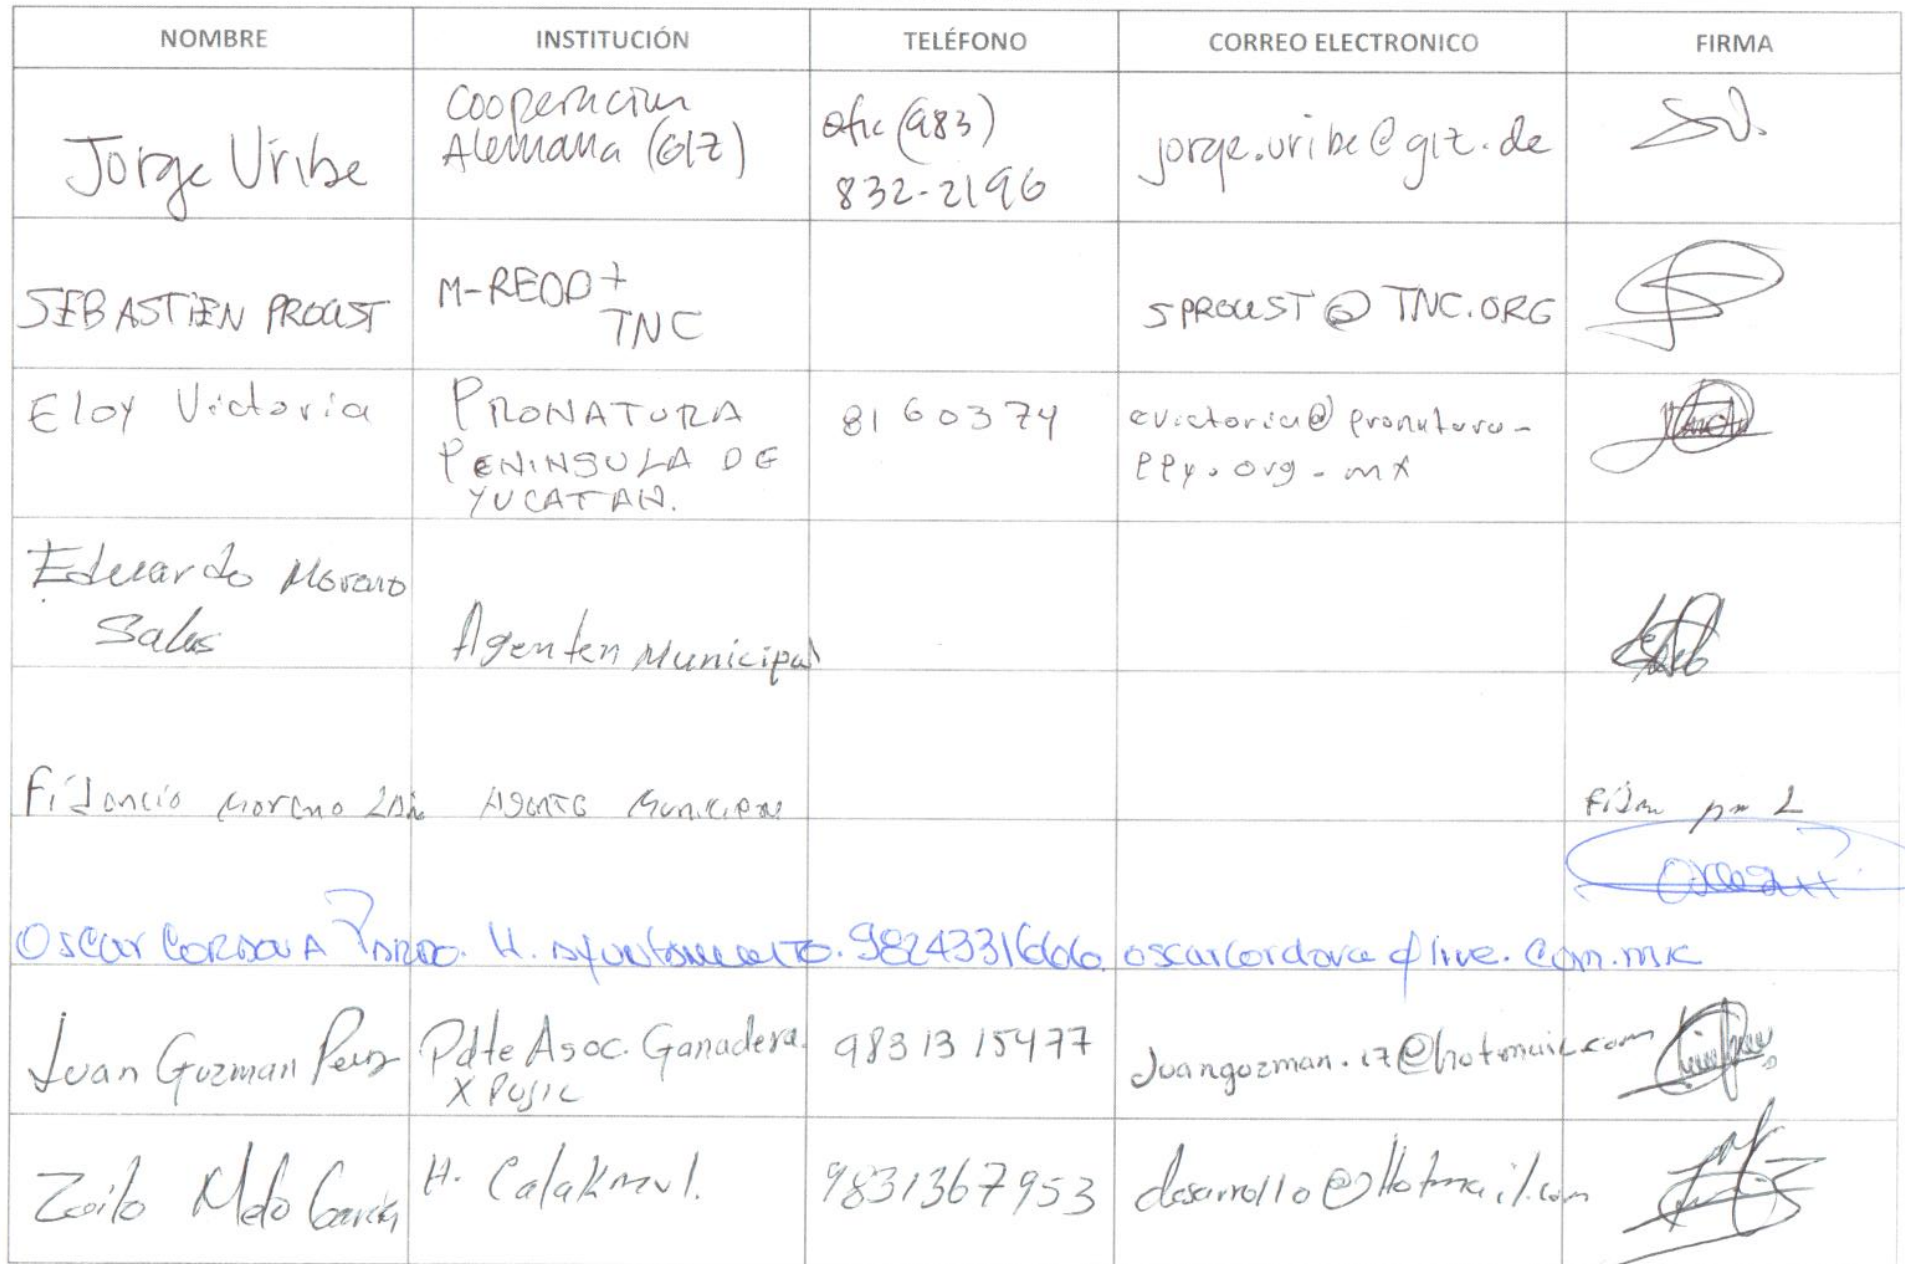 NOMBRE INSTITUCIÓN TELÉFONO CORREO ELECTRONICO FIRMA
Jorge Uribe
Cooperacion
Alemana (GIZ)
ofic (983)
832-2196
jorge.uribe@giz.de
SEBASTIEN PROUST
M-REDD+
TNC
SPROUST@TNC.ORG
Eloy Victoria
PRONATURA
PENINSULA DE
YUCATAN.
8160374
evictoria@pronatura-
ppy.org.mx
Eduardo Moreno
Salas
Agenten Municipal
Fidencio Moreno
Agente Municipal
Oscar CORDOVA PARDO. H. Ayuntamiento. oscarcordova@live.com.mx
Juan Guzman Perez
Pdte Asoc. Ganadera
Xpujil
983 13 15477
Juanguzman.17@hotmail.com
Zoilo García
H. Calakmul.
9831367953
desarrollo@Hotmail.com